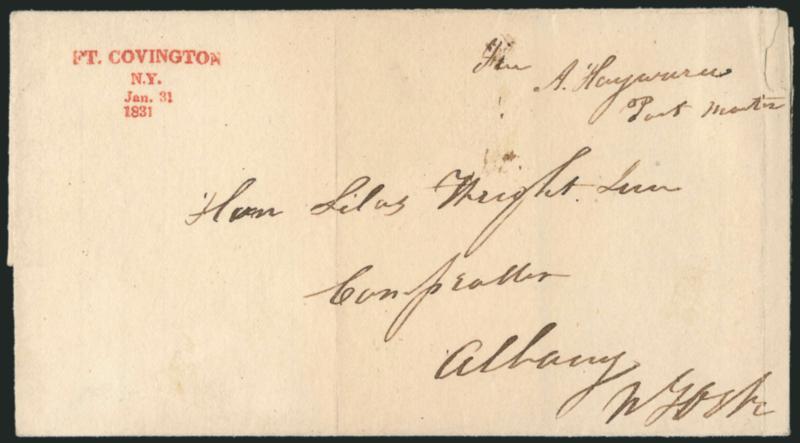 FT. COVINGTON
N.Y.
Jan. 31
1831
Free
A. Hayward
Post Master
Hon Silas Wright Jun
Comptroller
Albany
N York